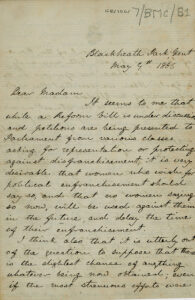 7/BMC/B1
Blackheath Park Kent
May 9th 1866
Dear Madam
It seems to me that
while a Reform Bill is under discussion
and petitions are being presented to
Parliament from various classes
asking for representation or protesting
against disfranchisement, it is very
desirable that women who wish for
political enfranchisement should
say so, and that no women saying
so now, will be used against them
in the future and delay the time
of their enfranchisement.
I think also that it is utterly out
of the question to suppose that there
is the slightest chance of anything
whatever being now obtained, even
if the most strenuous efforts were